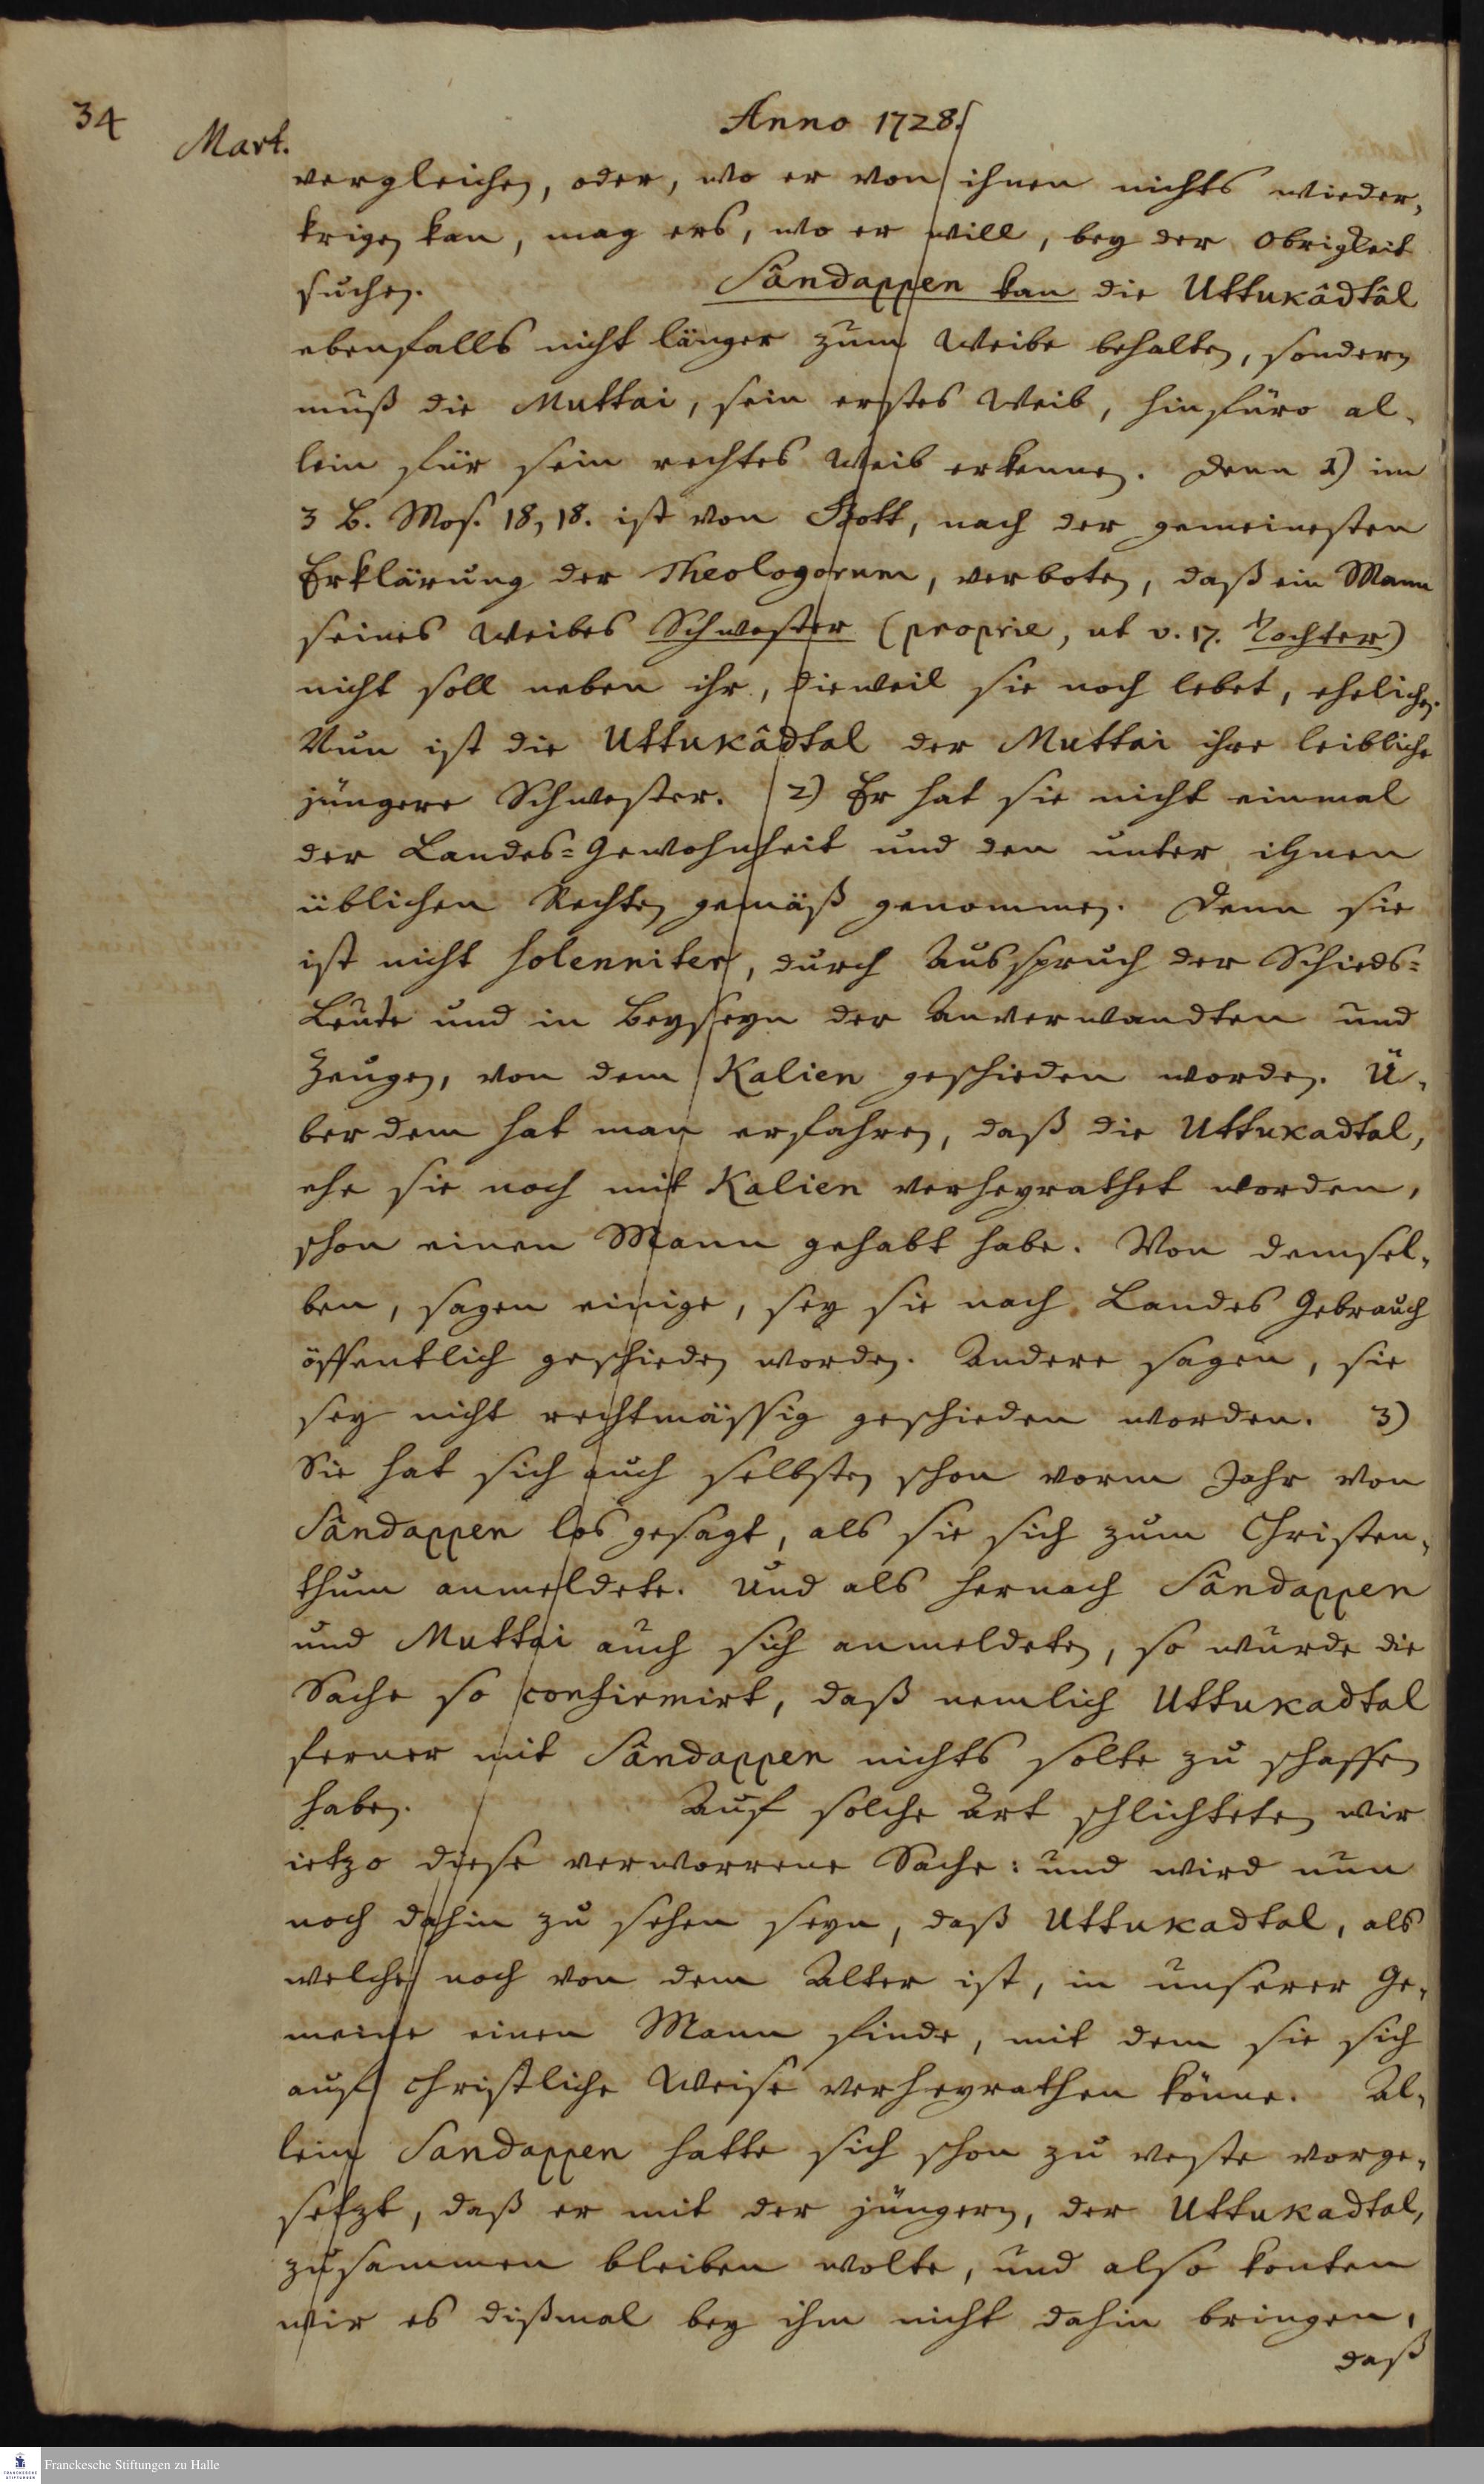 34
Mart.
Anno 1728.
vergleichen, oder, wo er von ihnen nichts wieder,
krigen kan, mag ers, wo er will, bey der Obrigkeit
suchen. Sândappen kan die Uttukâdtâl
ebenfalls nicht länger zum Weibe behalten, sondern
muß die Muttai, sein erstes Weib, hinfüro al,
lein für sein rechtes Weib erkennen. Denn 1) im
3 B. Mos. 18, 18. ist von Gott, nach der gemeinesten
Erklärung der Theologorum, verboten, daß ein Mann
seines Weibes Schwester (proprie, ut v. 17. Tochter)
nicht soll neben ihr, dieweil sie noch lebet, ehelichen.
Nun ist die Uttukâdtal der Muttai ihre leibliche
jüngere Schwester. 2) Er hat sie nicht einmal
der Landes=Gewohnheit und den unter ihnen
üblichen Rechten gemäß genommen. Denn sie
ist nicht solenniter, durch Ausspruch der Schieds=
Leute und in Beyseyn der Anverwandten und
Zeugen, von dem Kalien geschieden worden. Ü,
ber dem hat man erfahren, daß die Uttukadtal,
ehe sie noch mit Kalien verheyrathet worden,
schon einen Mann gehabt habe. Von demsel,
ben, sagen einige, sey sie nach Landes Gebrauch
öffentlich geschieden worden. Andere sagen, sie
sey nicht rechtmässig geschieden worden. 3)
Sie hat sich auch selbsten schon vorm Jahr von
Sândappen los gesagt, als sie sich zum Christen,
thum anmeldete. Und als hernach Sândappen
und Muttai auch sich anmeldeten, so wurde die
Sache so confirmirt, daß nemlich Uttukadtal
ferner mit Sândappen nichts solte zu schaffen
haben. Auf solche Art schlichteten wir
ietzo diese verworrene Sache: und wird nun
noch dahin zu sehen seyn, daß Uttukadtal, als
welche noch von dem Alter ist, in unserer Ge,
meine einen Mann finde, mit dem sie sich
auf christliche Weise verheyrathen könne. Al,
lein Sandappen hatte sich schon zu veste vorge,
setzt, daß er mit der jüngern, der Uttukadtal,
zusammen bleiben wolte, und also konten
wir es dißmal bey ihm nicht dahin bringen,
daß
Franckesche Stiftungen zu Halle